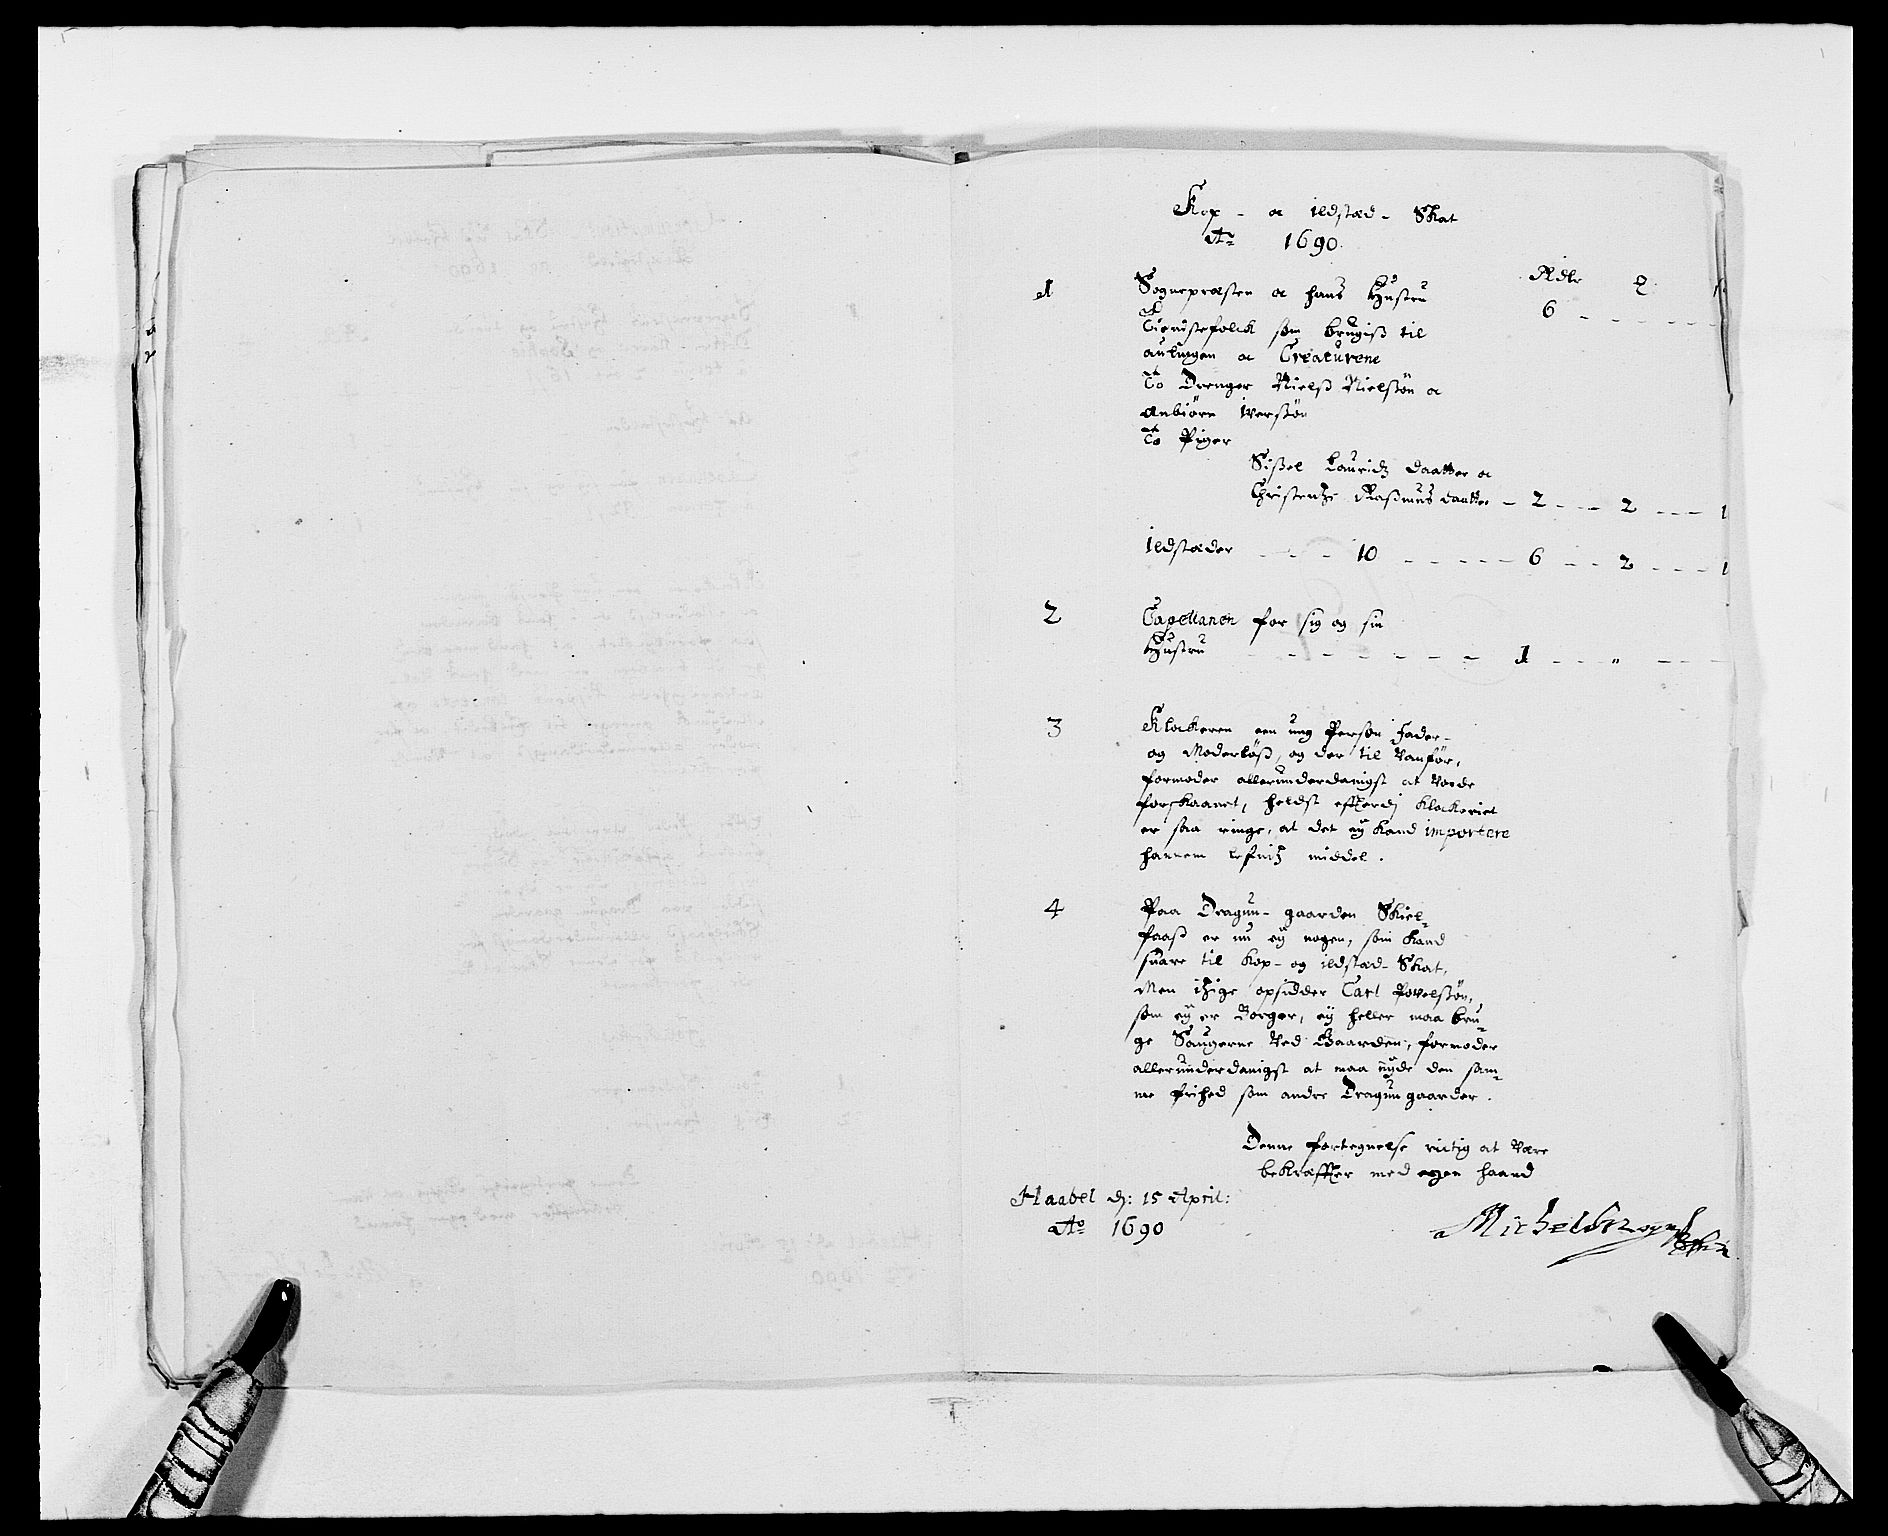 Kop - oc ildstæd - Skat
Ao 1690
Rdlr
1 Sognepræsten oc hans Hustru 6
Tienistefolck som brugis til
aulingen oc Creaturene
To Drenger Nielß Nielßøn oc
Anbiörn Iverßøn
To Piger
Sißel Lauridtz daatter oc
Christentze Raßmus daatter - 2 - - 2 - - 1
Ildstæder - - - 10 - - - - 6 - - 2 - - - 1
2 Capellanen for sig og sin
Hustru - - - - - - - 1 - - " - -
3 Klockeren een ung Person Fader-
og Moderlöß, og der til Vanför,
formoder allerunderdanigst at vorde
forskaanet, heldst effterdj Klockeriet
er saa ringe, at det ey kand importere
hannem lefnitz middel.
4 Paa Dragun-gaarden Skiel-
faaß er nu ey nogen, som kand
suare til kop- og ildstæd-Skat,
Men itzige opsidder Carl Povelßøn,
som ey er Borger, ey heller maa bru-
ge Saugerne ved Gaarden, formoder
allerunderdanigst at maa nyde den sam-
me frihed som andre Dragun gaarder.
Denne fortegnelse rictig at være
bekræffter med egen haand
Haabel dj: 15 April:
Ao 1690